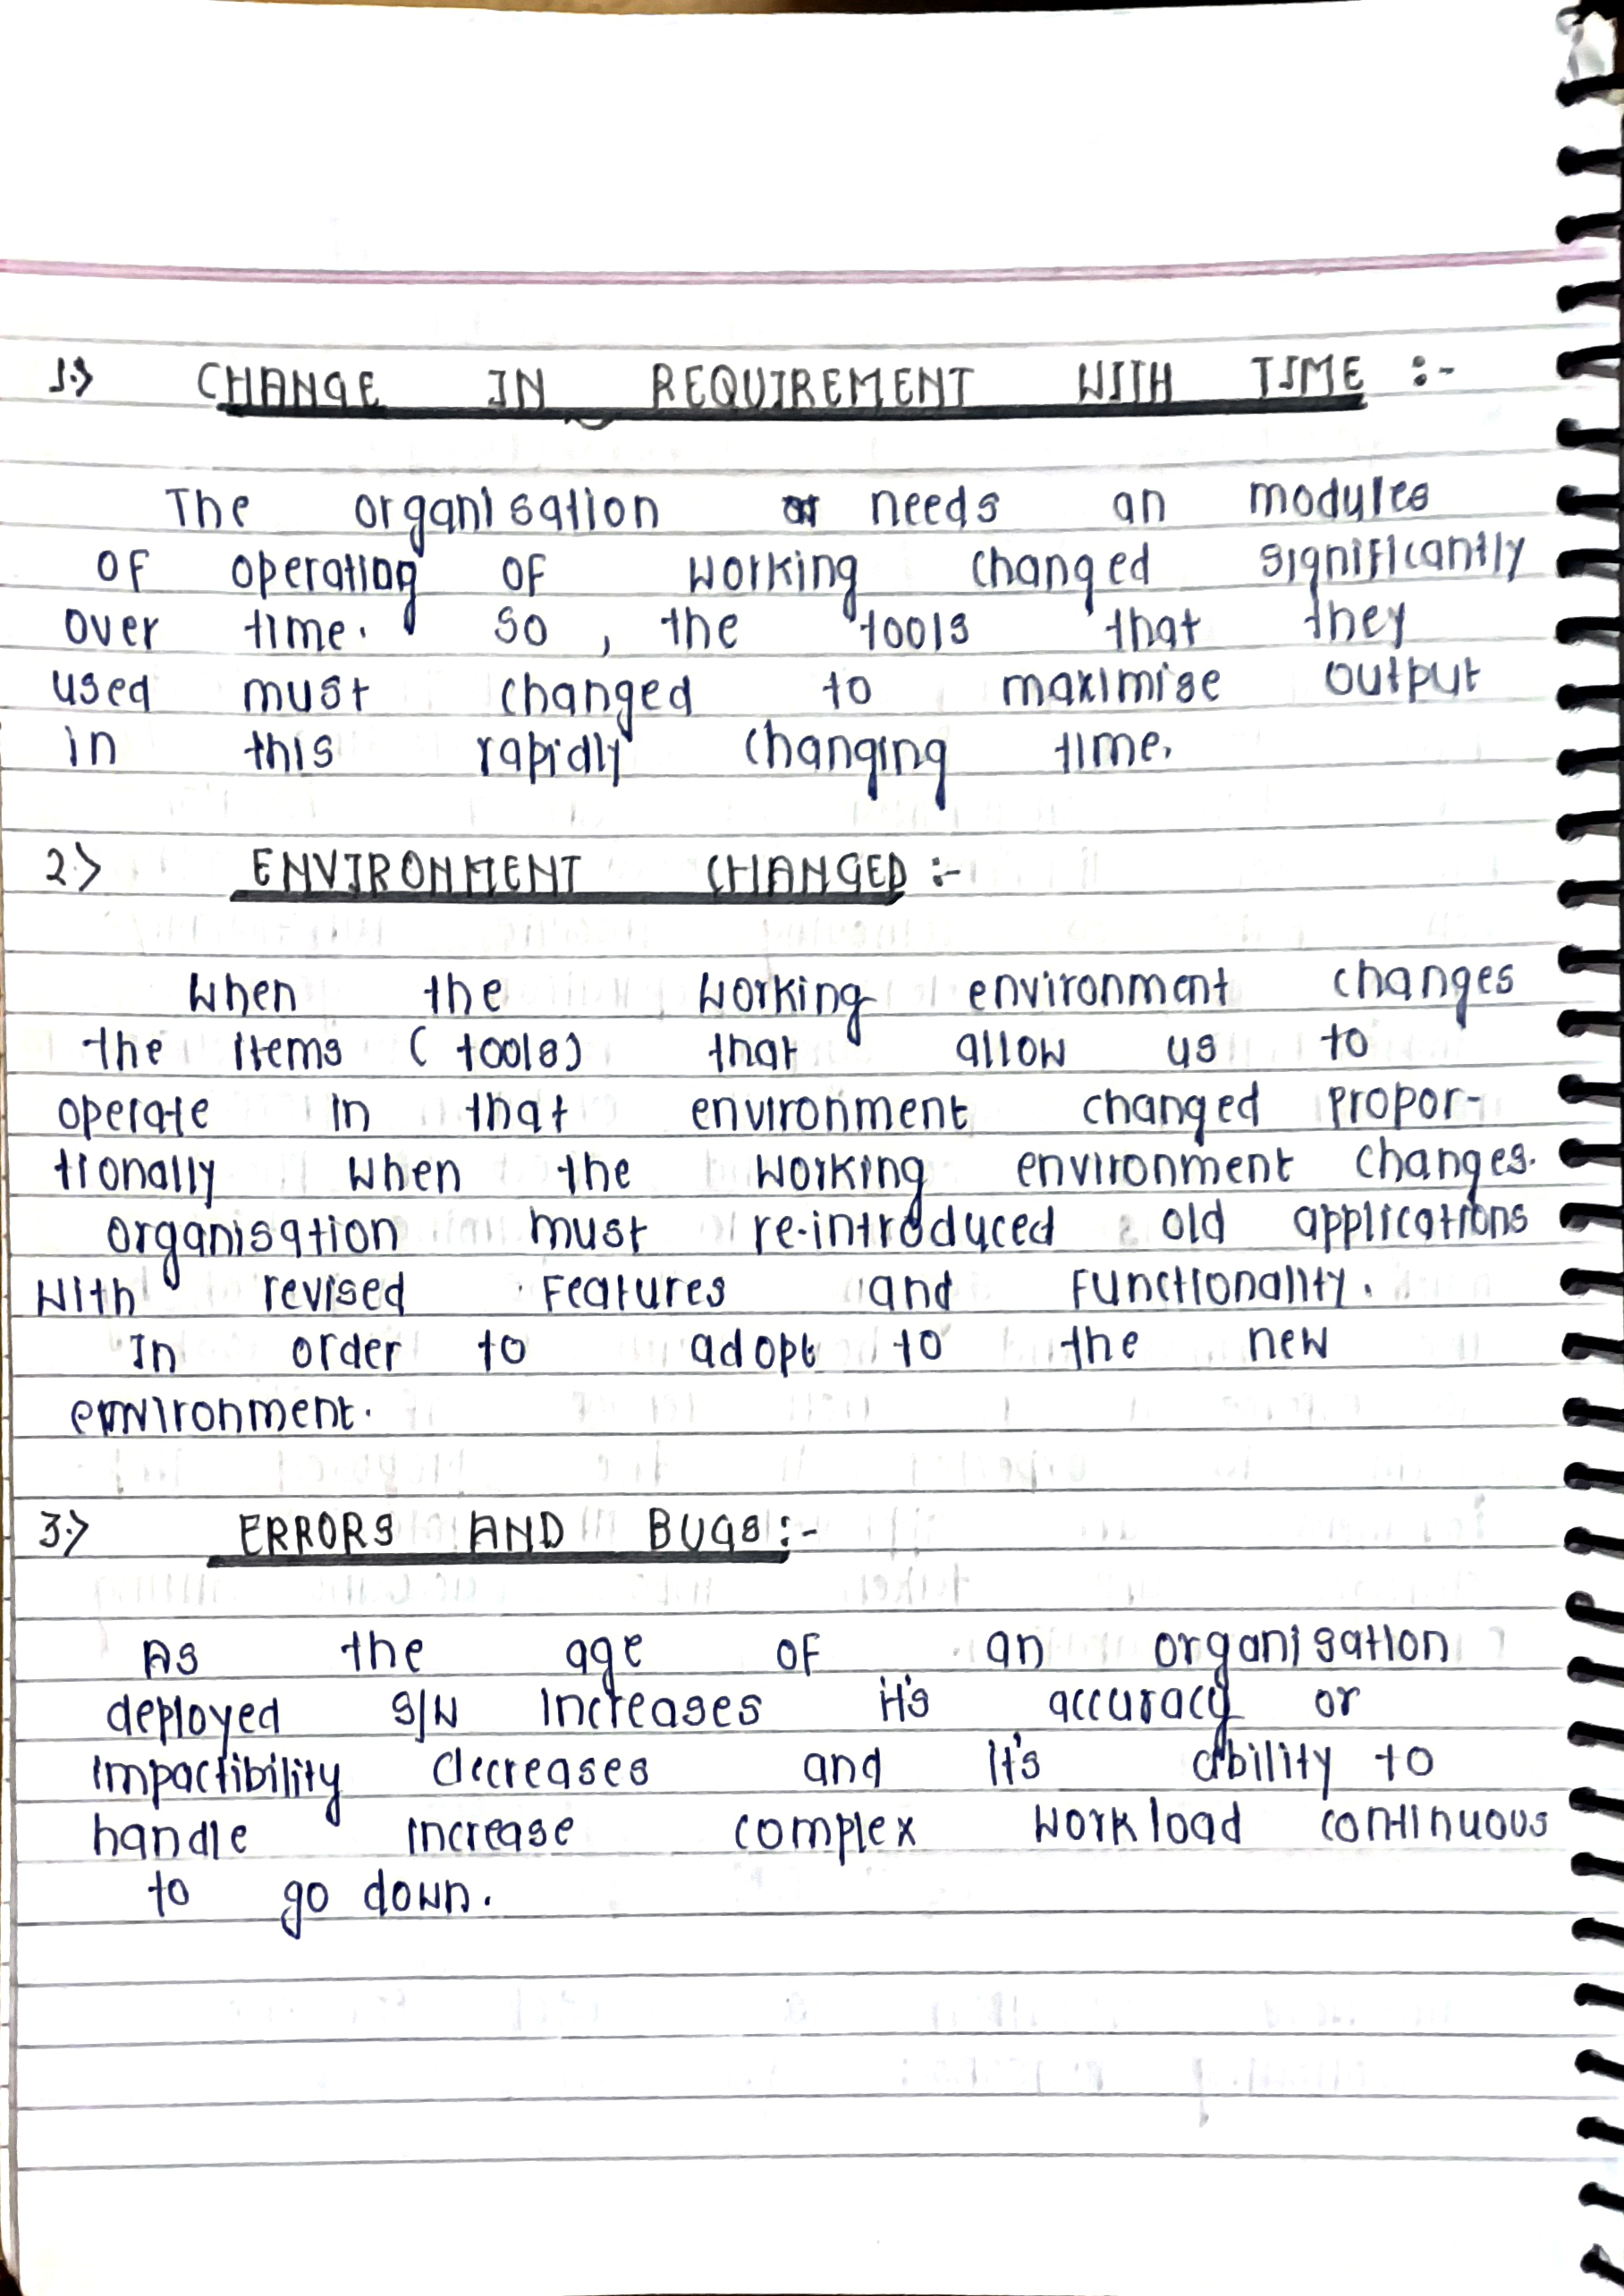 1.> CHANGE IN REQUIREMENT WITH TIME :-
The organisation needs an modules
of operating of working changed significantly
over time. So, the tools that they
used must changed to maximise output
in this rapidly changing time.
2.> ENVIRONMENT CHANGED :-
When the working environment changes
the items (tools) that allow us to
operate in that environment changed propor-
tionally when the working environment changes.
organisation must re-introduced old applications
with revised features and functionality.
In order to adopt to the new
environment.
3.> ERRORS AND BUGS :-
As the age of an organisation
deployed S/W increases it's accuracy or
impactibility decreases and it's ability to
handle increase complex workload continuous
to go down.